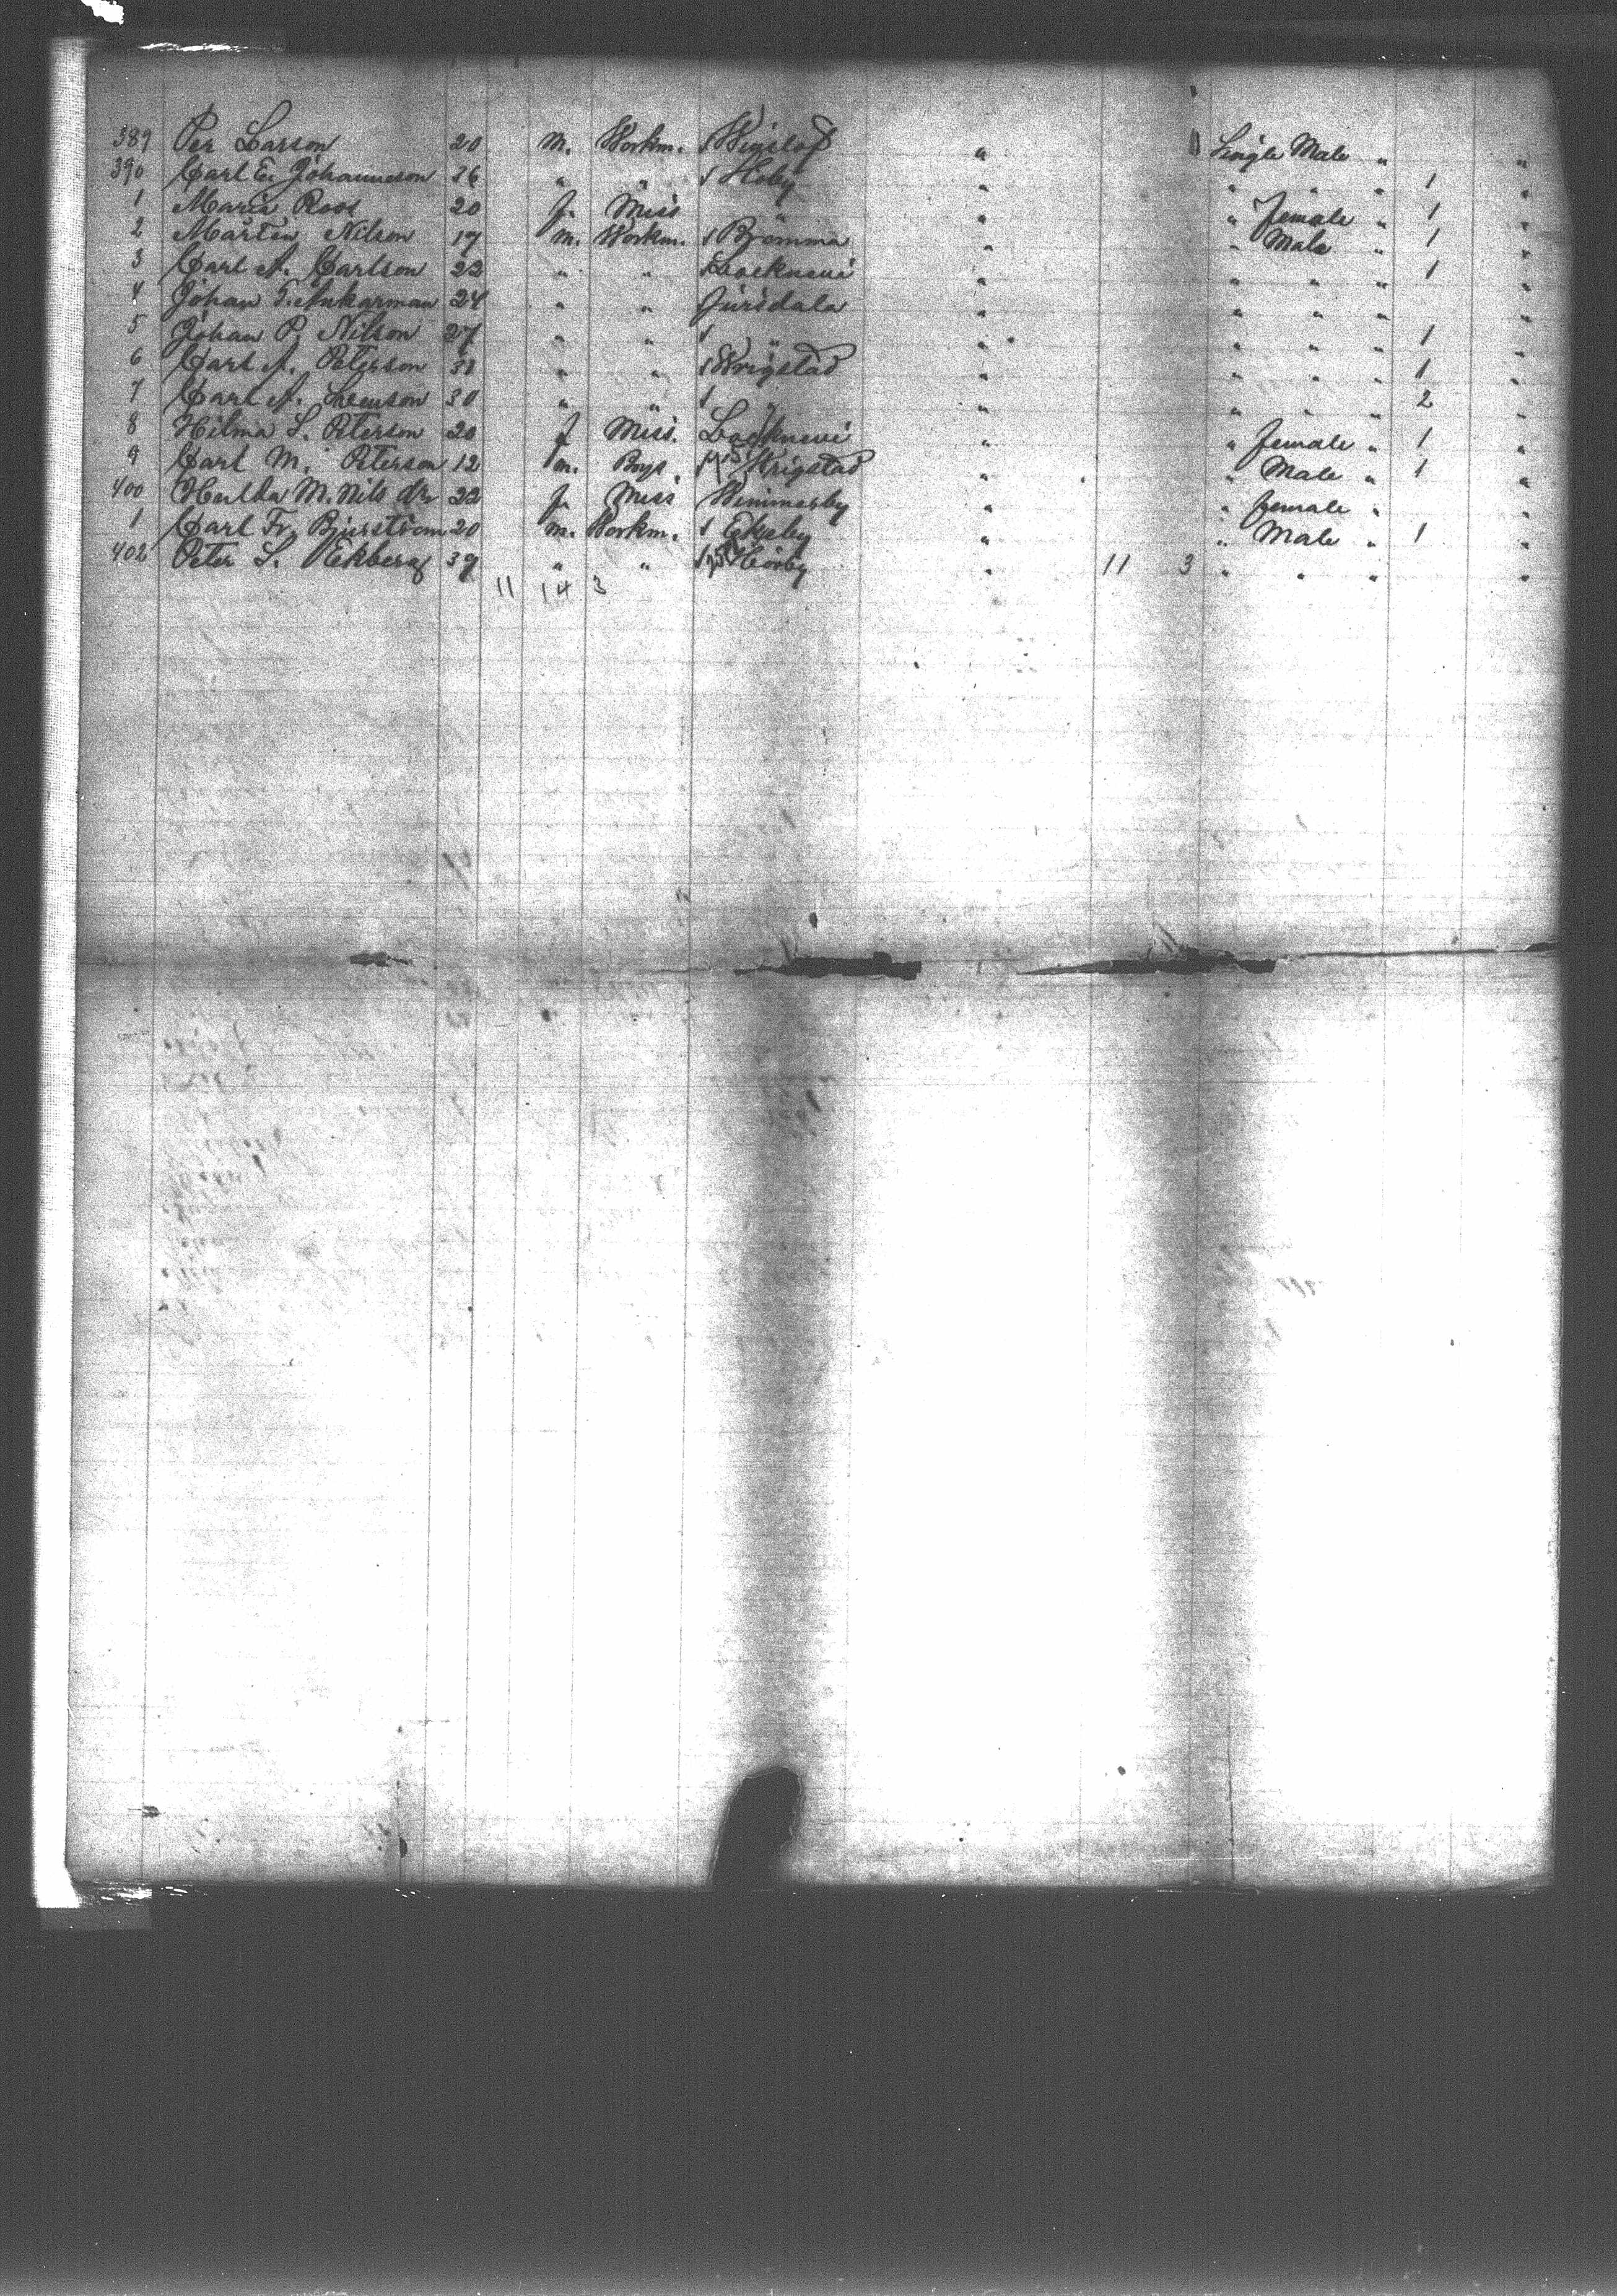 389 Per Larson 20 m. Workm. Wigslof " Single Male " "
390 Carl E. Johanneson 26 " " Hoby " " " " 1 "
1 Maria Roos 20 f. Miss " " female " 1 "
2 Mårten Nilson 19 m. Workm. Brömma " " Male " 1 "
3 Carl A. Carlson 22 " " Locknevi " " " " 1 "
4 Johan F. Ankarman 24 " " Jursdala " " " " "
5 Johan P. Nilson 27 " " " " " " " 1 "
6 Carl A. Peterson 31 " " Wrigstad " " " " 1 "
7 Carl A. Svenson 30 " " " " " " " 2 "
8 Hilma S. Peterson 20 f Miss. Locknevi " " female " 1 "
9 Carl M. Peterson 12 m. Boys. Wrigstad " " Male " 1 "
400 Hulda M. Nils dr 22 f. Miss Wimmerby " " female " "
1 Carl Fr. Bjurström 20 m. Workm. Eksby " " Male " 1 "
402 Peter S. Ekberg 39 " " Hörby " 11 3 " " " "
11 14 3